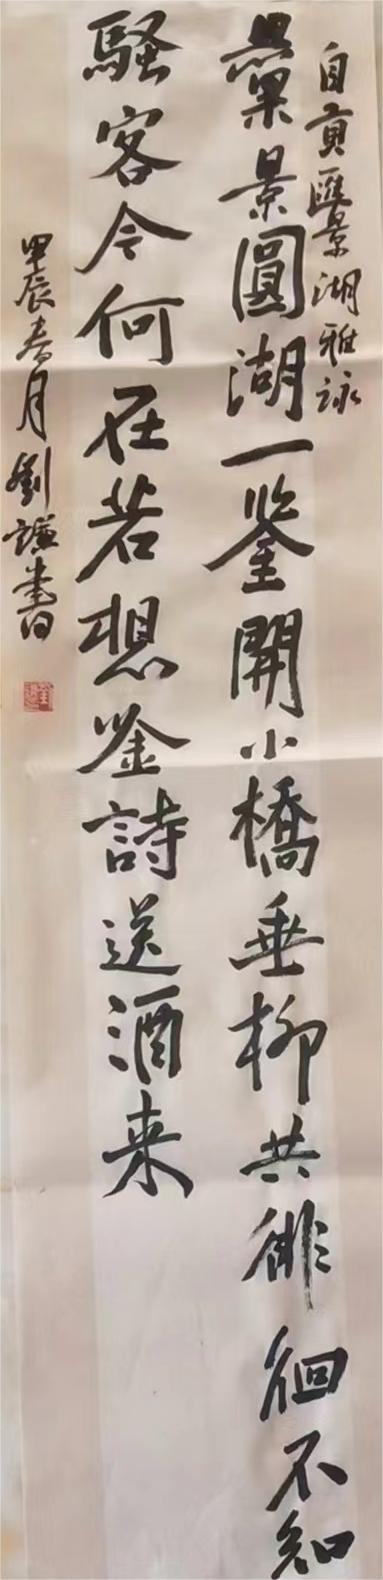 自貢匯景湖雅詠
景圓湖一鉴開小橋垂柳共徘徊不知
騷客今何在若想鉴詩送酒来
甲辰春月劉謙書